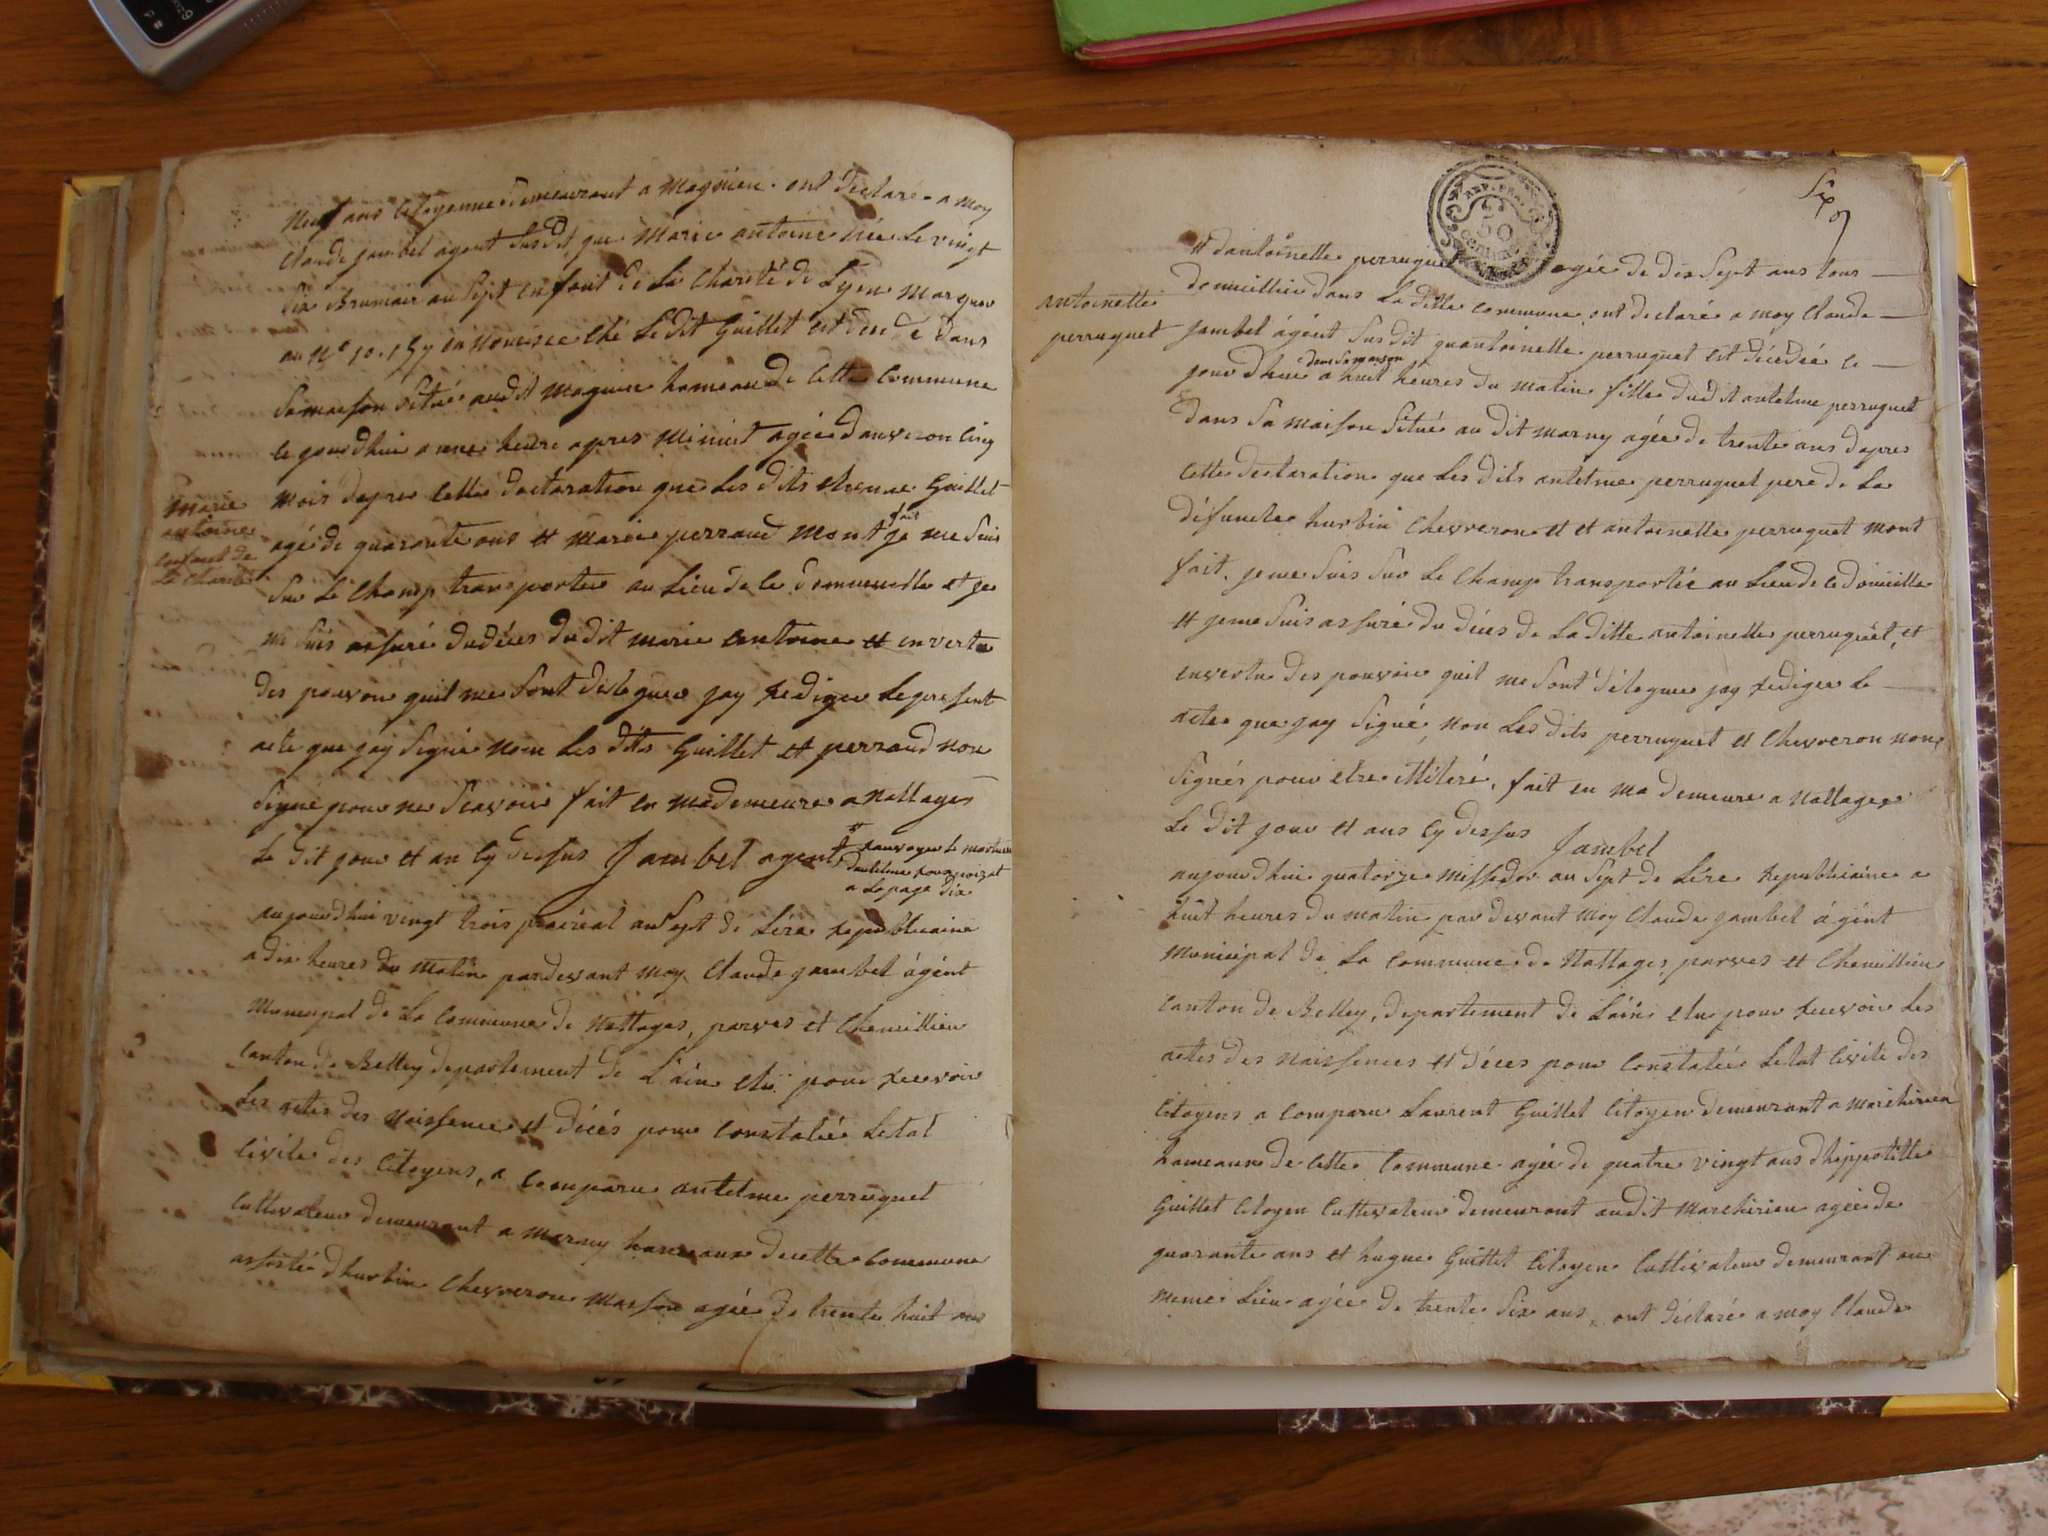 neuf ans citoyenne demeurant a magnieu. ont declaré a moy
Claude jambet agent susdit que marie antoine née le vingt
six Brumair an sept enfant de la charité de Lyon marquer
au N° 10.157 en nourisse ché ledit Guillet est decedé dans
sa maison situé audit magnieu hameau de cette commune
cejourdhui a une heure apres minuit agée danviron cinq
marie
antoine
enfant de
la charité
mois dapres cette declaration que les dits etienne Guillet
agé de quarante ans et marie perraud mont fait je me suis
sur le champ transporter au lieu de ce domicille et je
me suis assuré du déces dudit marie antoine et en vertu
des pouvoir quil me sont deleguer jay rediger le present
acte que jay signé non les dits Guillet et perraud non
signé pour ne scavoir fait en ma demeure a Nattages
le dit jour et an cy dessus Jambet agent
a la page dix
aujourdhui vingt trois prairéal an sept de lére republicaine
a dix heures du matin pardevant moy Claude jambet ágént
municipal de la commune de Nattages, parves et Chemillieu
canton de Belley departement de L'ain elu pour recevoir
les actes des naissence et décés pour constatée letat
civile des citoyens, a comparu antelme perruquet
cultivateur demeurant a marny hameaux de cette commune
assisté dhurbin Chevreron masson agée de trente huit ans
Six
REP. FRA.
50
CENTIMES
et dantoinette perruquet agée de dix sept ans tous
domicilliée dans la ditte commune ont declaré a moy Claude
antoinette
perruquet
jambet ágént susdit quantoinette perruquet est décedée ce
jourdhui dans sa maison a huit heures du matin fille dudit antelme perruquet
dans sa maison situé au dit marny agée de trente ans dapres
cette declaration que les dits antelme perruquet pere de la
défuncte hurbin Chevreron et et antoinette perruquet mont
fait. je me suis sur le champ transportée au lieu de ce domicille
et je me suis assuré du déces de laditte antoinette perruquet, et
en vertu des pouvoir quil me sont déleguer jay rediger le
acte que jay signé, non les dits perruquet et Chevreron non
signés pour etre illiteré. fait en ma demeure a Nattages
le dit jour et ans cy dessus Jambet
aujourdhui quatorze messedor an sept de lére republicaine a
huit heures du matin par devant moy Claude jambet ágént
municipal de la commune de Nattages, parves et Chemillieu
canton de Belley, departement de lain elu pour recevoir les
actes des naissences et déces pour constatée letat civile des
citoyens a comparu Laurent Guillet citoyen demeurant a marchirieu
hameaux de cette commune agée de quatre vingt ans dhippolitte
Guillet citoyen cultivateur demeurant audit marchirieu agée de
quarante ans et hugue Guillet citoyen cultivateur demeurant au
meme lieu agée de trente six ans, ont déclaré a moy Claude